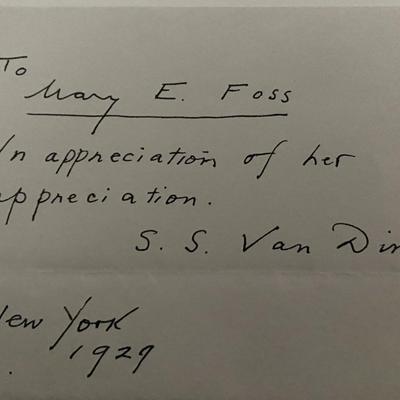 To
Mary E. Foss
In appreciation of her
appreciation.
S. S. Van Din
New York
1929
.